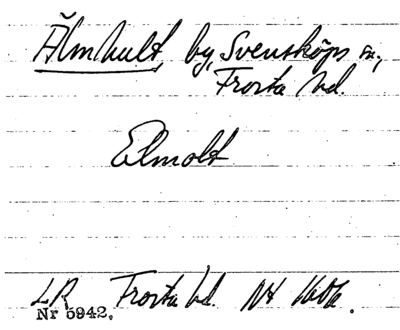 Älmhult, by, Svensköps sn,
Frosta hd.
Elmolt
LR Frosta hd. Nr
Nr 5942.